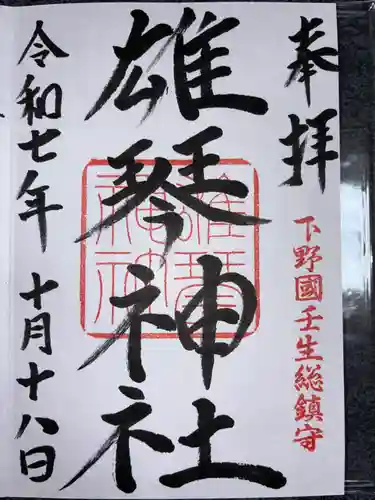 奉拝
下野國壬生総鎮守
雄琴神社
雄琴神社
令和七年 十月十八日